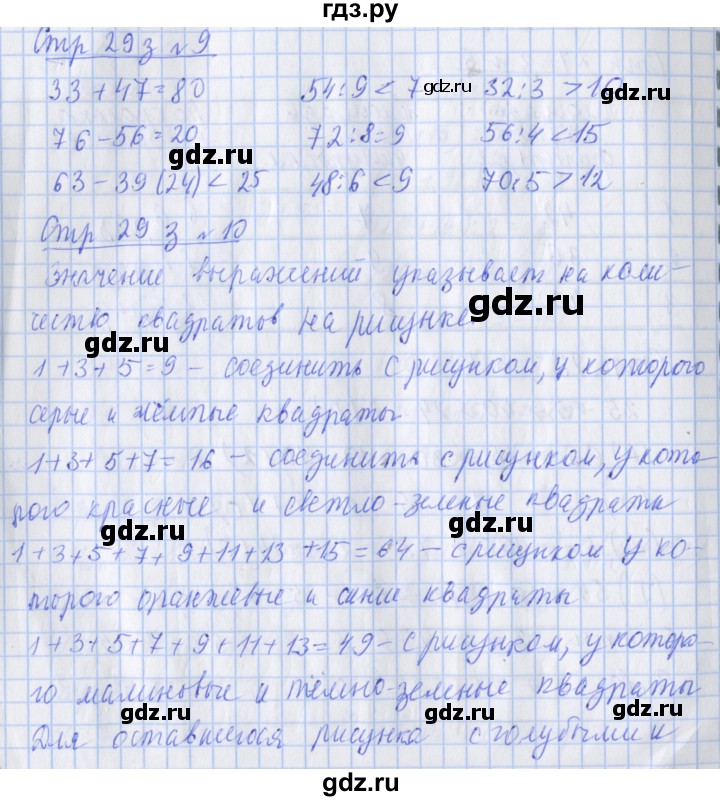 гдз.ру
Стр 29 з №9
33 + 47 = 80 54 : 9 < 7 32 : 3 > 16
gdz.ru
76 - 56 = 20 72 : 8 = 9 56 : 4 < 15
gdz.ru gdz.ru
63 - 39 (24) < 25 48 : 6 < 9 70 : 5 > 12
Стр 29 з №10
gdz.ru
Значение выражений указывает на коли-
чество квадратов на рисунке.
gdz.ru
gdz.ru
1 + 3 + 5 = 9 - соединить с рисунком, у которого
серые и жёлтые квадраты
gdz.ru
1 + 3 + 5 + 7 = 16 - соединить с рисунком, у кото-
gdz.ru
рого красные и светло-зеленые квадраты
gdz.ru gdz.ru
1 + 3 + 5 + 7 + 9 + 11 + 13 + 15 = 64 - с рисунком у ко-
торого оранжевые и синие квадраты
gdz.ru
1 + 3 + 5 + 7 + 9 + 11 + 13 = 49 - с рисунком, у которо-
gdz.ru
го малиновые и тёмно-зеленые квадраты
gdz.ru gdz.ru
Для оставшегося рисунка с голубыми и
gdz.ru